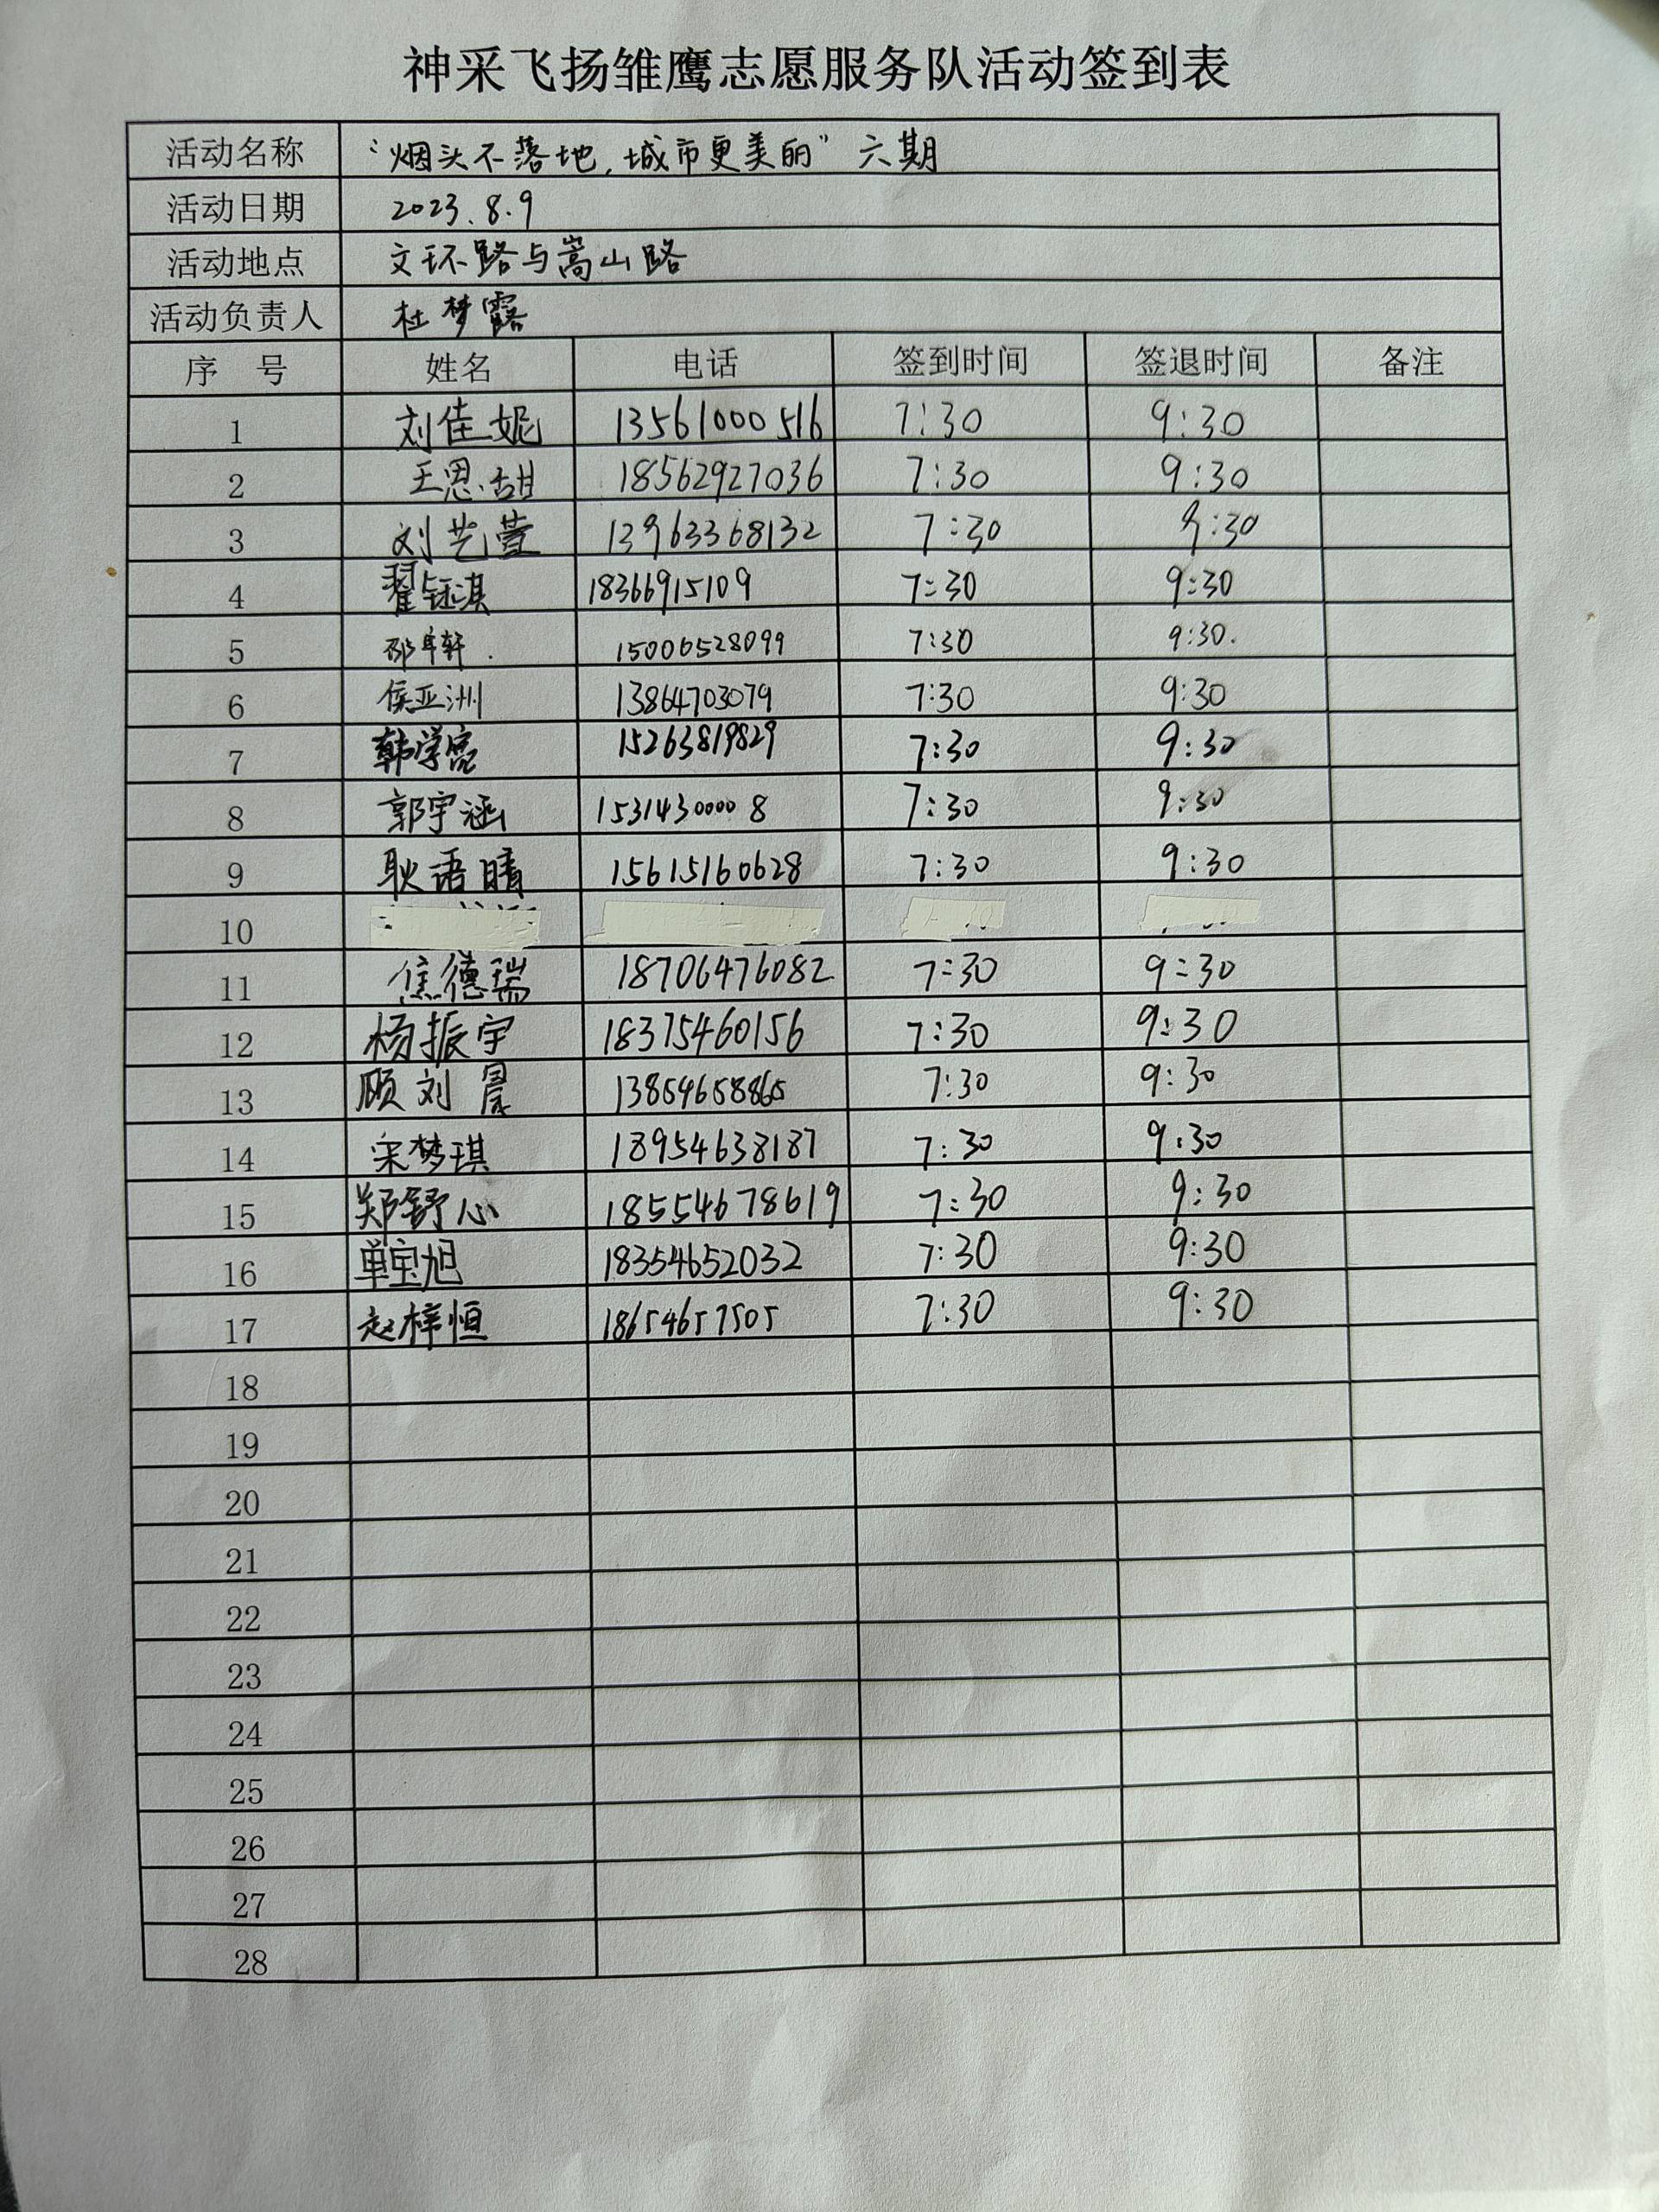 神采飞扬雏鹰志愿服务队活动签到表
活动名称 “烟头不落地,城市更美丽” 六期
活动日期 2023.8.9
活动地点 文环路与嵩山路
活动负责人 杜梦露
序 号 姓名 电话 签到时间 签退时间 备注
1 刘佳妮 13561000516 7:30 9:30
2 王恩甜 18562927036 7:30 9:30
3 刘艺萱 13963368132 7:30 9:30
4 翟钰淇 18366915109 7:30 9:30
5 15006528099 7:30 9:30.
6 侯亚洲 13864703079 7:30 9:30
7 韩学 15263819829 7:30 9:30
8 郭宇涵 15314300008 7:30 9:30
9 耿语晴 15615160628 7:30 9:30
10
11 焦德瑞 18706476082 7:30 9:30
12 杨振宇 18375460156 7:30 9:30
13 顾刘晨 13854658865 7:30 9:30
14 宋梦琪 18954638187 7:30 9:30
15 郑舒心 18554678619 7:30 9:30
16 单宝旭 18354652032 7:30 9:30
17 赵梓恒 18654657505 7:30 9:30
18
19
20
21
22
23
24
25
26
27
28